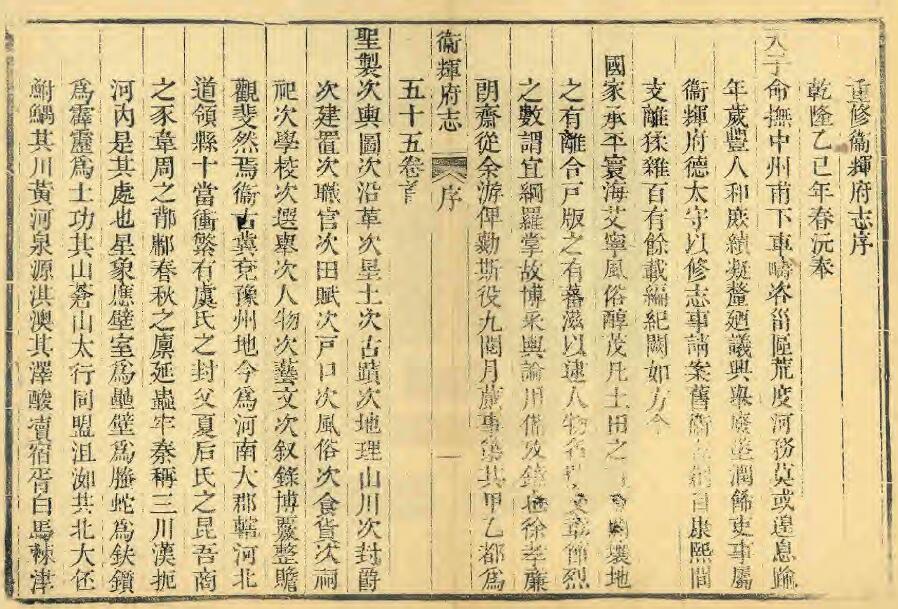 重修衞輝府志序
乾隆乙巳年春沅奉
天子
命撫中州甫下車疇咨甾區荒度河務莫或遑息踰
年歲豐人和庶績凝釐廼議興舉廢墜潤餙吏事屬
衞輝府德太守以修志事請案舊衞志創自康熙間
支離猥雜百有餘載編紀闕如方今
國家承平寰海艾寧風俗醇茂凡土田之壤地
之有離合戸版之有蕃滋以逮人物名文章徽烈
之數謂宜綱羅掌故博采輿論用備攷鏡延徐孝廉
朗齋從余游俾勷斯役九閱月蕆事彚其甲乙都爲
五十五卷首
衞輝府志
序
一
聖製次輿圖次沿革次星土次古蹟次地理山川次封爵
次建置次職官次田賦次戸口次風俗次食貨次祠
祀次學校次選舉次人物次藝文次叙錄博覈整贍
觀斐然焉衞古冀兗豫州地今爲河南大郡轄河北
道領縣十當衝繁有虞氏之封父夏后氏之昆吾商
之豕韋周之鄁鄘春秋之廩延蟲牢秦稱三川漢扼
河內是其處也星象應壁室爲壘壁爲騰蛇爲鈇鑕
爲霹靂爲土功其山蒼山太行同盟沮洳共北大伾
鮒鰅其川黃河泉源淇澳其澤酸棗宿胥白馬棘津